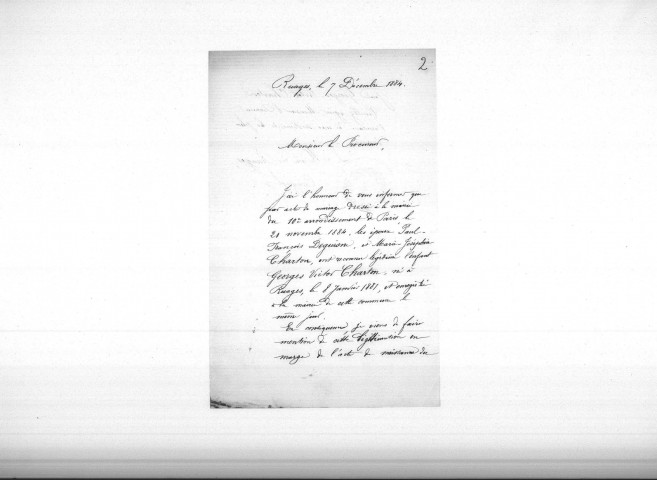 2
Ruages, le 7 Décembre 1884.
Monsieur le Procureur,
J'ai l'honneur de vous informer que
par acte de mariage dressé à la mairie
du 10e arrondissement de Paris, le
21 novembre 1884, les époux Paul-
François Deguison, et Marie-Joséphine
Charton, ont reconnu légitime l'enfant
Georges Victor Charton, né à
Ruages, le 8 janvier 1881, et enregistré
à la mairie de cette commune le
même jour.
En conséquence, je viens de faire
mention de cette légitimation en
marge de l'acte de naissance du